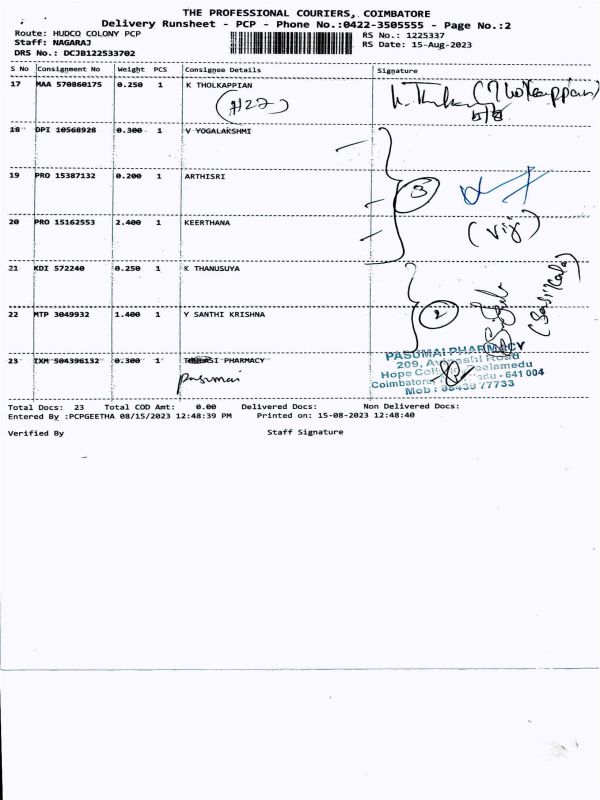 THE PROFESSIONAL COURIERS, COIMBATORE
Delivery Runsheet - PCP - Phone No.:0422-3505555 - Page No.:2
Route: HUDCO COLONY PCP RS No.: 1225337
Staff: NAGARAJ RS Date: 15-Aug-2023
DRS No.: DCJB122533702
S No Consignment No Weight PCS Consignee Details Signature
17 MAA 570860175 0.250 1 K THOLKAPPIAN (Tholkappian)
(H22)
18 DPI 10568928 0.300 1 V YOGALAKSHMI
19 PRO 15387132 0.200 1 ARTHISRI 3
20 PRO 15162553 2.400 1 KEERTHANA (viji)
21 KDI 572240 0.250 1 K THANUSUYA
22 MTP 3049932 1.400 1 Y SANTHI KRISHNA 2 (Sasikala)
23 IXM 504396132 0.300 1 PHARMACY
pasumai
PASUMAI PHARMACY
209, Road
Hope
Coimbatore - 641 004
Mob : 77733
Total Docs: 23 Total COD Amt: 0.00 Delivered Docs: Non Delivered Docs:
Entered By :PCPGEETHA 08/15/2023 12:48:39 PM Printed on: 15-08-2023 12:48:40
Verified By Staff Signature